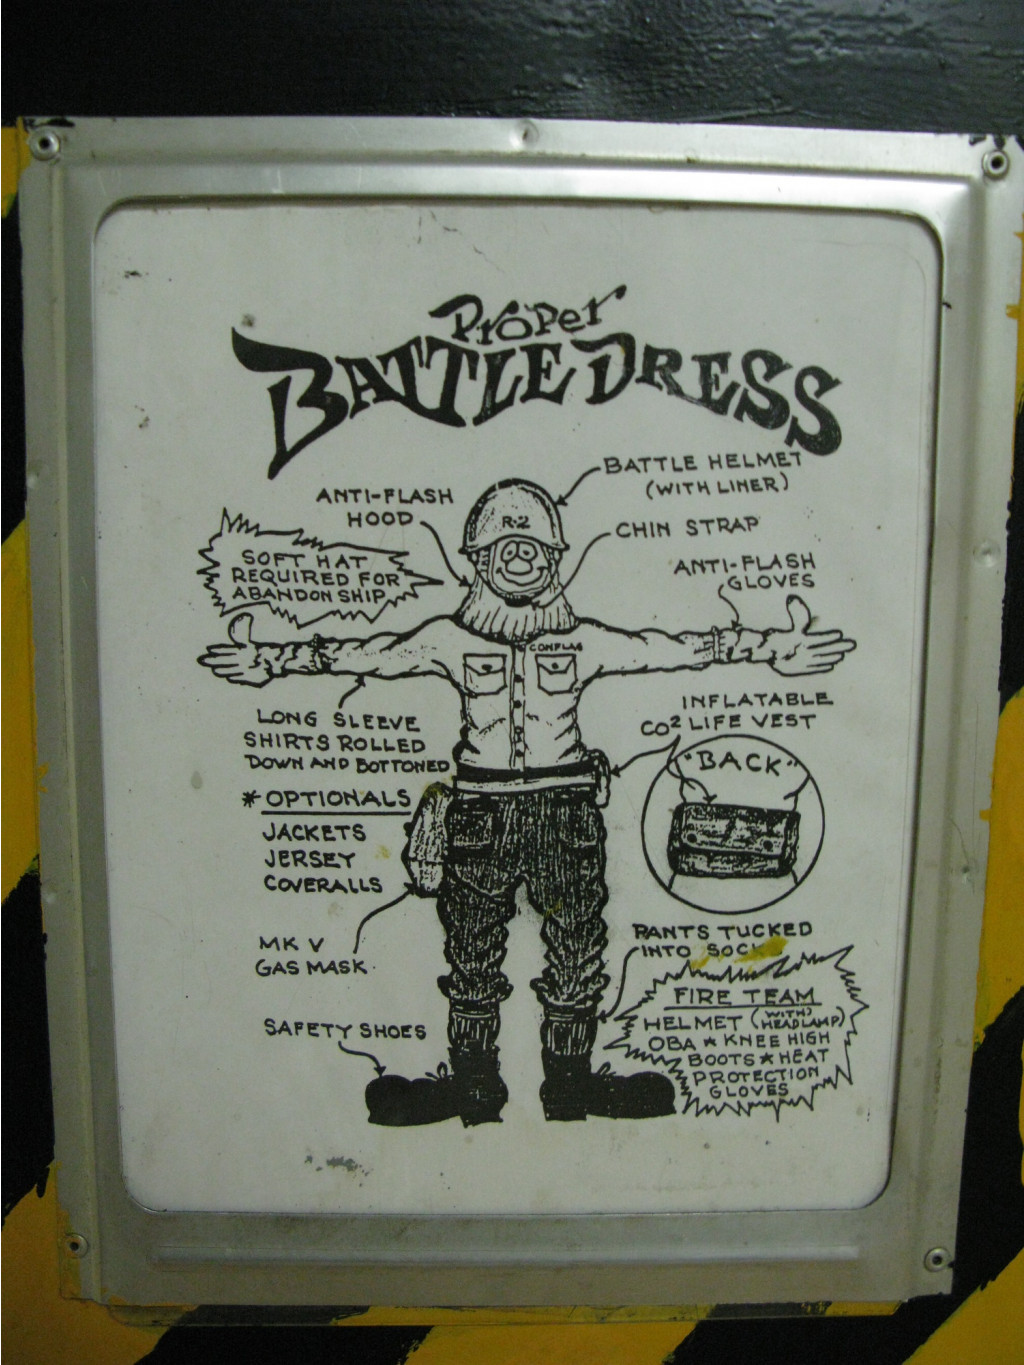 Proper
BATTLE DRESS
BATTLE HELMET
(WITH LINER)
ANTI-FLASH
HOOD
R-2
CHIN STRAP
SOFT HAT
REQUIRED FOR
ABANDON SHIP
ANTI-FLASH
GLOVES
CONFLAG
LONG SLEEVE
SHIRTS ROLLED
DOWN AND BOTTONED
INFLATABLE
CO2 LIFE VEST
"BACK"
* OPTIONALS
JACKETS
JERSEY
COVERALLS
MK V
GAS MASK
PANTS TUCKED
INTO SOCK
SAFETY SHOES
FIRE TEAM
HELMET (WITH HEADLAMP)
OBA * KNEE HIGH
BOOTS * HEAT
PROTECTION
GLOVES